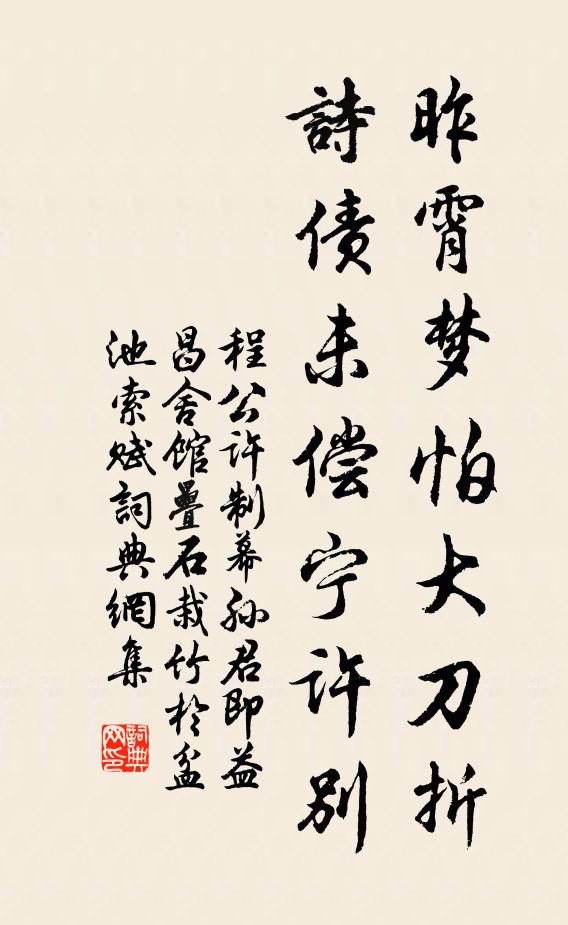 昨霄梦怕大刀折
詩债未偿宁许別
程公许制幕孙君即益
昌舍馆疊石栽竹於盆
池索赋詞典網集
詞典网印